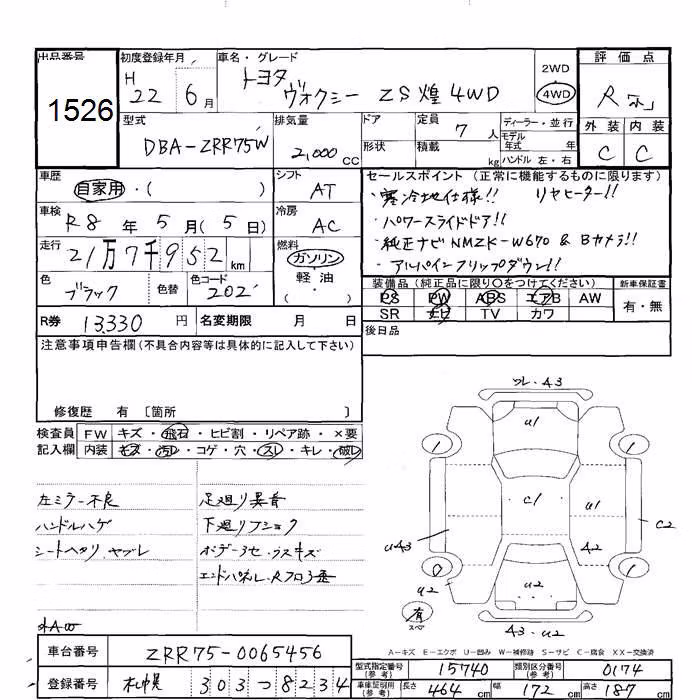 出品番号
1526
初度登録年月
H 22 6月
車名・グレード
トヨタ ヴォクシー ZS 煌 4WD
2WD
4WD
評価点
R
外装 内装
C C
型式
DBA-ZRR75W
排気量
2,000 CC
ドア
形状
定員 7人
積載 kg
ディーラー・並行
モデル年式 年
ハンドル 左・右
車歴
自家用・( )
シフト
AT
車検
R8年5月(5日)
冷房
AC
走行
21万7千952km
燃料
ガソリン
軽油
・( )
色
ブラック
色替
色コード
202
R券 13330円
名変期限 月 日
セールスポイント(正常に機能するものに限ります)
・寒冷地仕様!! リヤヒーター!!
・パワースライドドア!!
・純正ナビ NMZK-W670 & Bカメラ!!
・アルパインフリップダウン!!
装備品(純正品に限り○をつけてください)
新車保証書
PS PW ABS エアB AW
SR ナビ TV カワ
有・無
後日品
注意事項申告欄(不具合内容等は具体的に記入して下さい)
修復歴 有〔箇所 〕
検査員記入欄
FW キズ・飛石・ヒビ割・リペア跡・×要
内装 キズ・汚れ・コゲ・穴・スレ・キレ・破レ
左ミラー不良
ハンドルハゲ
シートヘタリ、ヤブレ
足廻り異音
下廻りフショク
ボデー3セ・ラスキズ
エンドパネル、Rフロア歪
外AW
ワレ・A3
U1
C1
U1
A2
C2
U43
U2
U2
A3・U2
有
スペア
A-キズ E-エクボ U-凹み W-補修跡 S-サビ C-腐食 XX-交換済
車台番号
ZRR75-0065456
登録番号
札幌 303 つ 8234
型式指定番号(参考) 15740
類別区分番号(参考) 0174
車庫証明用(参考) 長さ 464cm 幅 172cm 高さ 187cm